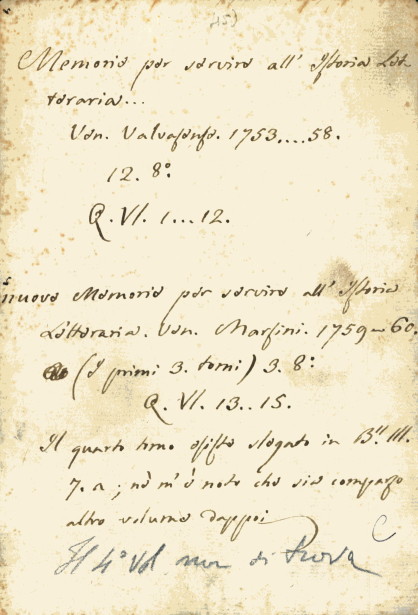 451
Memorie per servire all' Istoria Let
teraria...
Ven. Valvasense. 1753....58.
12. 8º.
Q. VI. 1...12.
nuove Memorie per servire all' Istoria
Letteraria. Ven. Marsini. 1759-60.
(i primi 3. tomi) 3. 8º.
Q. VI. 13..15.
Il quarto tomo esiste slegato in B. III.
7. a ; nè m'è noto che sia comparso
altro volume dappoi
Il 4º Vol non di trova